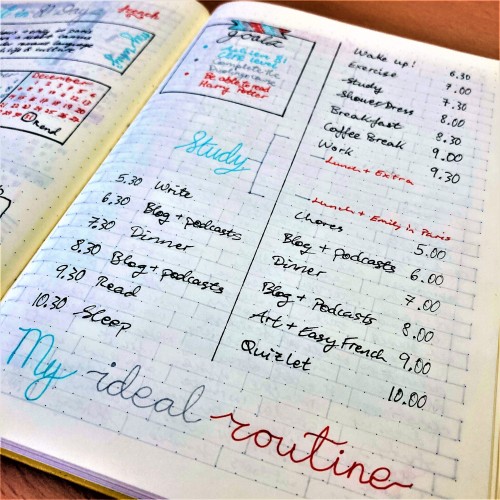 December
goals
level
Be able to read
Harry Potter
Study
5.30 Write
6.30 Blog + podcasts
7.30 Dinner
8.30 Blog + podcasts
9.30 Read
10.30 Sleep
Wake up! 6.30
Exercise 7.00
Study 7.30
Shower Dress 8.00
Breakfast 8.30
Coffee Break 9.00
Work 9.30
Lunch + Extra
Lunch + Emily in Paris
Chores 5.00
Blog + podcasts 6.00
Dinner 7.00
Blog + Podcasts 8.00
Art + Easy French 9.00
Quizlet 10.00
My ideal routine